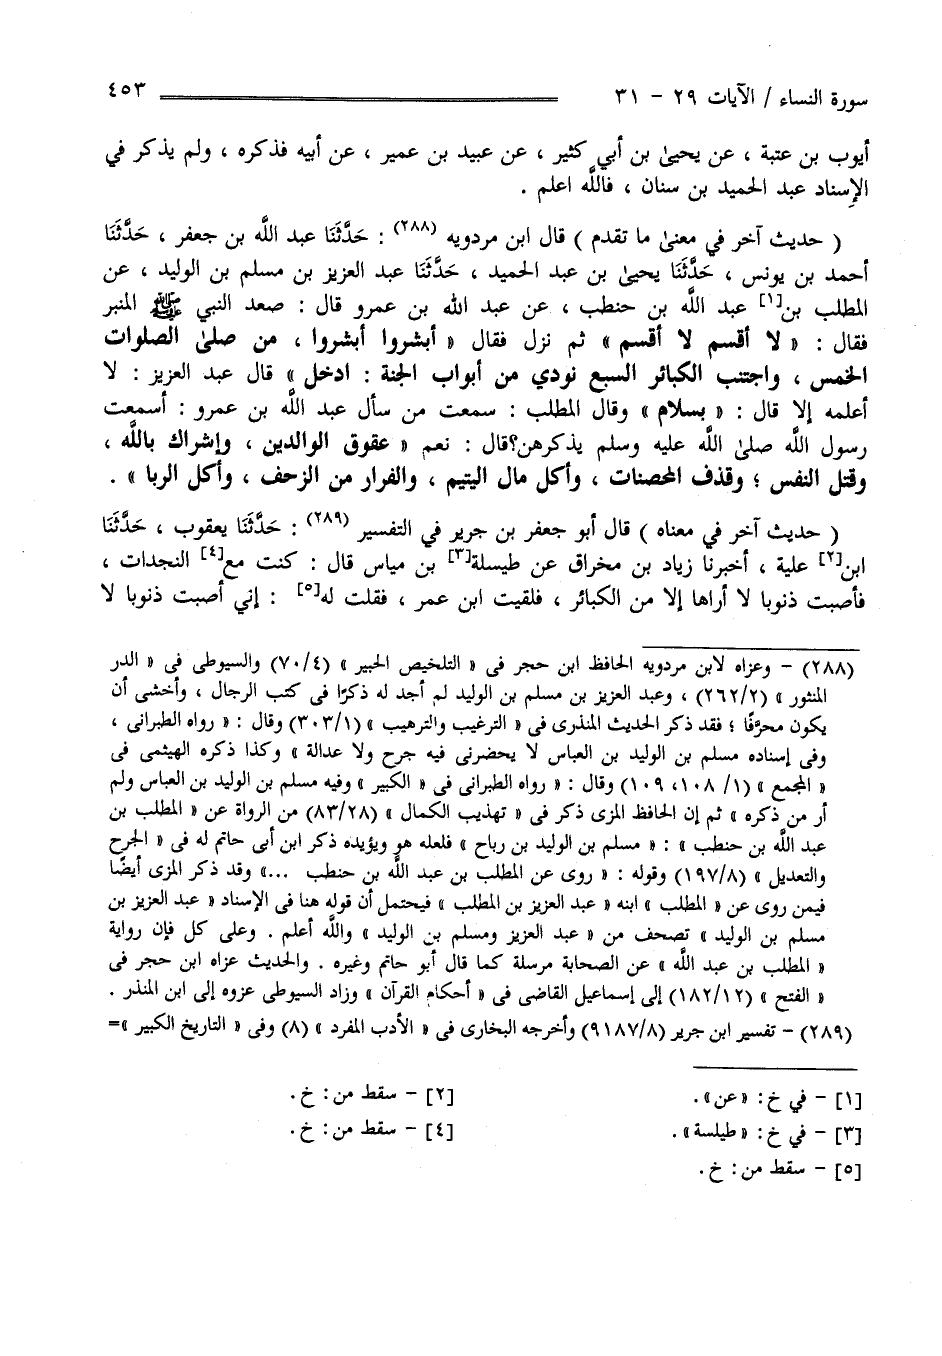 سورة النساء / الآيات ٢٩ - ٣١ ٤٥٣
أيوب بن عتبة ، عن يحيىٰ بن أبي كثير ، عن عبيد بن عمير ، عن أبيه فذكره ، ولم يذكر في
الإسناد عبد الحميد بن سنان ، فاللَّه اعلم .
( حديث آخر في معنىٰ ما تقدم ) قال ابن مردويه (٢٨٨) : حَدَّثَنَا عبد اللَّه بن جعفر ، حَدَّثَنَا
أحمد بن يونس ، حَدَّثَنَا يحيىٰ بن عبد الحميد ، حَدَّثَنَا عبد العزيز بن مسلم بن الوليد ، عن
المطلب بن[١] عبد اللَّه بن حنطب ، عن عبد الله بن عمرو قال : صعد النبي ﷺ المنبر
فقال : « لا أقسم لا أقسم » ثم نزل فقال « أبشروا أبشروا ، من صلىٰ الصلوات
الخمس ، واجتنب الكبائر السبع نودي من أبواب الجنة : ادخل » قال عبد العزيز : لا
أعلمه إلا قال : « بسلام » وقال المطلب : سمعت من سأل عبد اللَّه بن عمرو : أسمعت
رسول اللَّه صلىٰ اللَّه عليه وسلم يذكرهن؟قال : نعم « عقوق الوالدين ، وإشراك باللَّه ،
وقتل النفس ؛ وقذف المحصنات ، وأكل مال اليتيم ، والفرار من الزحف ، وأكل الربا » .
( حديث آخر في معناه ) قال أبو جعفر بن جرير في التفسير (٢٨٩) : حَدَّثَنَا يعقوب ، حَدَّثَنَا
ابن[٢] علية ، أخبرنا زياد بن مخراق عن طيسلة[٣] بن مياس قال : كنت مع[٤] النجدات ،
فأصبت ذنوبا لا أراها إلا من الكبائر ، فلقيت ابن عمر ، فقلت له[٥] : إني أصبت ذنوبا لا
(٢٨٨) - وعزاه لابن مردويه الحافظ ابن حجر فى « التلخيص الحبير » (٧٠/٤) والسيوطى فى « الدر
المنثور » (٢٦٢/٢) ، وعبد العزيز بن مسلم بن الوليد لم أجد له ذكرًا فى كتب الرجال ، وأخشى أن
يكون محرَّفًا ؛ فقد ذكر الحديث المنذرى فى « الترغيب والترهيب » (٣٠٣/١) وقال : « رواه الطبرانى ،
وفى إسناده مسلم بن الوليد بن العباس لا يحضرنى فيه جرح ولا عدالة » وكذا ذكره الهيثمى فى
« المجمع » (١/ ١٠٨، ١٠٩) وقال : « رواه الطبرانى فى « الكبير » وفيه مسلم بن الوليد بن العباس ولم
أر من ذكره » ثم إن الحافظ المزى ذكر فى « تهذيب الكمال » (٨٣/٢٨) من الرواة عن « المطلب بن
عبد اللَّه بن حنطب » : « مسلم بن الوليد بن رباح » فلعله هو ويؤيده ذكر ابن أبى حاتم له فى « الجرح
والتعديل » (١٩٧/٨) وقوله : « روى عن المطلب بن عبد اللَّه بن حنطب ...» وقد ذكر المزى أيضًا
فيمن روى عن « المطلب » ابنه « عبد العزيز بن المطلب » فيحتمل أن قوله هنا فى الإسناد « عبد العزيز بن
مسلم بن الوليد » تصحف من « عبد العزيز ومسلم بن الوليد » واللَّه أعلم . وعلى كل فإن رواية
« المطلب بن عبد اللَّه » عن الصحابة مرسلة كما قال أبو حاتم وغيره . والحديث عزاه ابن حجر فى
« الفتح » (١٨٢/١٢) إلى إسماعيل القاضى فى « أحكام القرآن » وزاد السيوطى عزوه إلى ابن المنذر .
(٢٨٩) - تفسير ابن جرير (٩١٨٧/٨) وأخرجه البخارى فى « الأدب المفرد » (٨) وفى « التاريخ الكبير »=
[١] - في خ: «عن». [٢] - سقط من: خ.
[٣] - في خ: «طيلسة». [٤] - سقط من: خ.
[٥] - سقط من: خ.